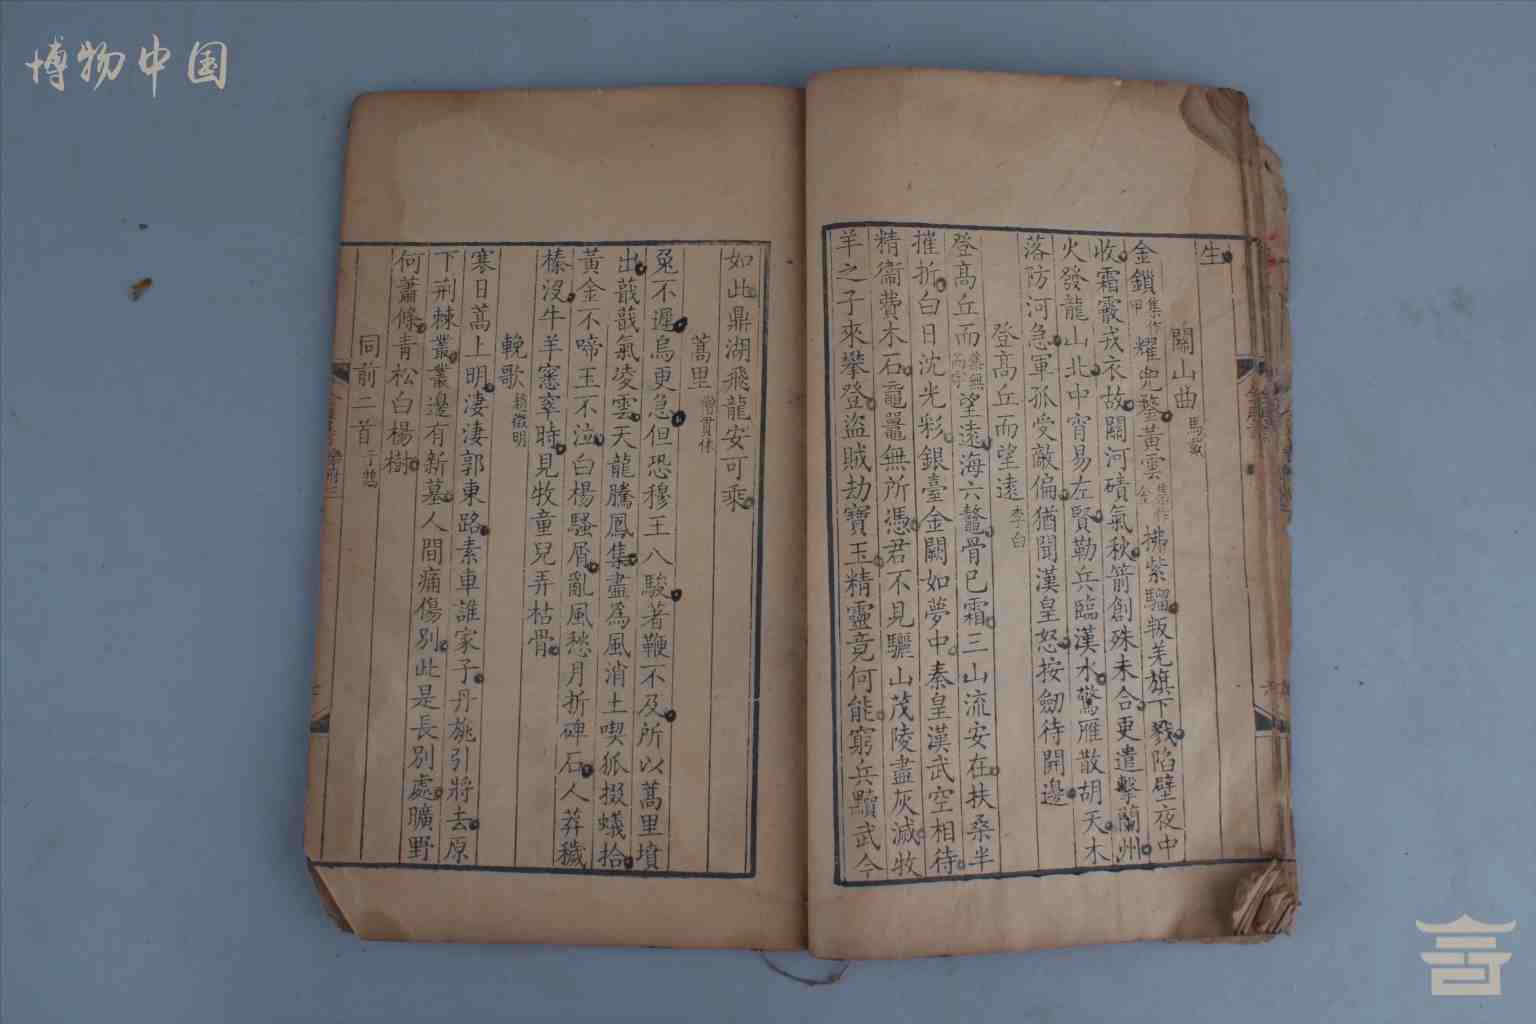 博物中国
生
關山曲 馬戴
金鎖集作甲耀兜鍪黃雲集作金拂紫騮叛羌旗下戮陷壁夜中
收霜霰戎衣故關河磧氣秋箭創殊未合更遣擊蘭州
火發龍山北中宵易左賢勒兵臨漢水驚雁散胡天木
落防河急軍孤受敵偏猶聞漢皇怒按劒待開邊
登高丘而望遠 李白
登高丘而集無而字望遠海六鼇骨已霜三山流安在扶桑半
摧折白日沈光彩銀臺金闕如夢中秦皇漢武空相待
精衞費木石黿鼉無所憑君不見驪山茂陵盡灰滅牧
羊之子來攀登盜賊劫寶玉精靈竟何能窮兵黷武今
如此鼎湖飛龍安可乘
蒿里 僧貫休
兔不遲烏更急但恐穆王八駿著鞭不及所以蒿里墳
出戢戢氣凌雲天龍騰鳳集盡爲風消土喫狐掇蟻拾
黃金不啼玉不泣白楊騷屑亂風愁月折碑石人莽穢
榛沒牛羊窸窣時見牧童兒弄枯骨
輓歌 趙徵明
寒日蒿上明淒淒郭東路素車誰家子丹旐引將去原
下荊棘叢叢邊有新墓人間痛傷別此是長別處曠野
何蕭條青松白楊樹
同前二首 于鵠